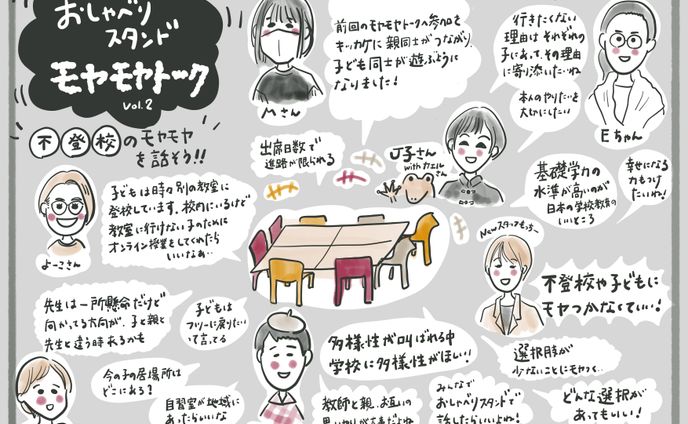 おしゃべり
スタンド
モヤモヤトーク
vol.2
不登校のモヤモヤ
を話そう!!
Mさん
前回のモヤモヤトークへ参加を
キッカケに親同士がつながり
子ども同士が遊ぶように
なりました!
行きたくない
理由はそれぞれの
子にあって、その理由
に寄り添いたいね
本人のやりたいを
大切にしたい
Eちゃん
出席日数で
進路が限られる
J子さん
with カエル
さん
基礎学力の
水準が高いのが
日本の学校教育の
いいところ
幸せになる
力もつけ
たいね!
子どもは時々別の教室に
登校しています。校内にいるけど
教室に行けない子のために
オンライン授業をしてくれたら
いいなぁ..
よーこさん
Newスタッフもっちー
不登校や子どもに
モヤつかなくていい!
先生は一所懸命だけど
向かってる方向が、子と親と
先生と違う時あるかも
子どもは
フツーに戻りたい
って言ってる
多様性が叫ばれる中
学校に多様性がほしい!
選択肢が
少ないことにモヤつく…
今の子の居場所は
どこにある?
自習室が地域に
あったらいいな
教師と親、お互いの
思いやりが大事だよね
みんなで
おしゃべりスタンドで
話したらいいよね!
どんな選択が
あってもいい!